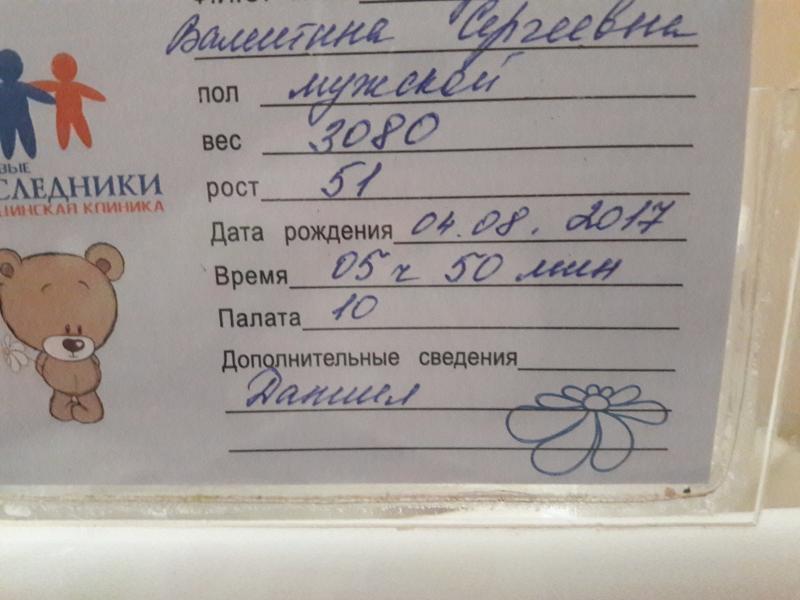 Валентина Сергеевна
пол мужской
вес 3080
рост 51
Дата рождения 04.08.2017
Время 05 ч 50 мин
Палата 10
Дополнительные сведения
Даниил
ВЫЕ
СЛЕДНИКИ
ЦИНСКАЯ КЛИНИКА